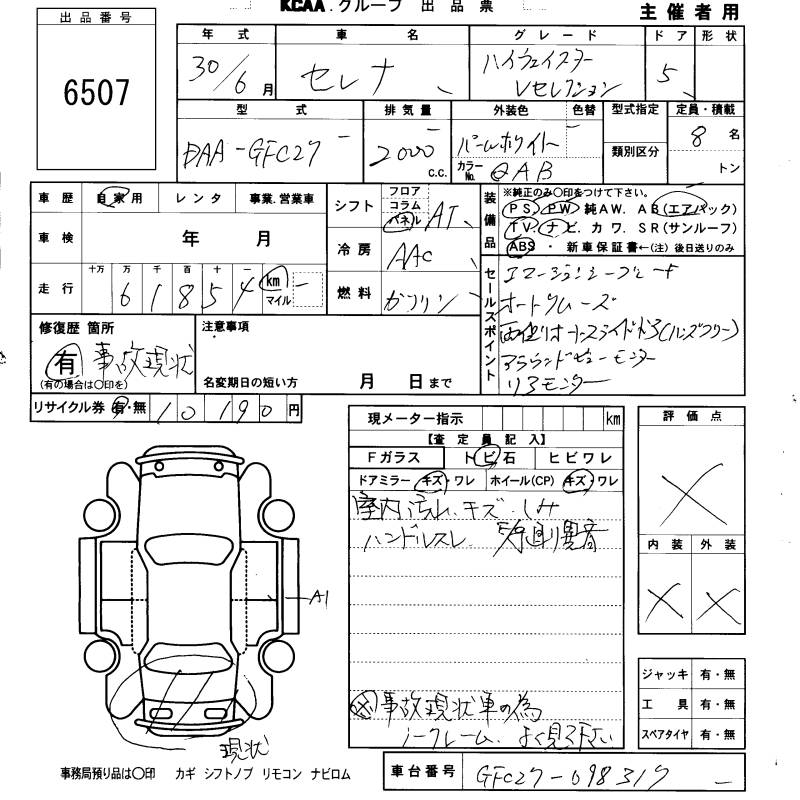 KCAA.グループ 出品票
主催者用
出品番号
6507
年式 車名 グレード ドア 形状
30/6月 セレナ ハイウェイスター
Vセレクション 5
型式 排気量 外装色 色替 型式指定 定員・積載
DAA-GFC27 2000 c.c. パールホワイト 8名
カラーNo. QAB 類別区分 トン
車歴 自家用 レンタ 事業.営業車
車検 年 月
走行 十万 万 千 百 十 一
61854 km マイル
シフト フロア コラム パネル AT
冷房 AAC
燃料 ガソリン
装備品 ※純正のみ〇印をつけて下さい。
PS PW 純AW. AB(エアバック)
TV ナビ. カワ. SR(サンルーフ)
ABS ・ 新車保証書←(注)後日送りのみ
セールスポイント
エマージェンシーブレーキ
オートクルーズ
両側オートスライドドア(ハンズフリー)
アラウンドビューモニター
リアモニター
修復歴 箇所
有 事故現状
(有の場合は〇印を)
注意事項
名変期日の短い方 月 日まで
リサイクル券 有・無 10190円
現メーター指示 km
【査定員記入】
Fガラス トビ石 ヒビワレ
ドアミラー キズ・ワレ ホイール(CP) キズ・ワレ
室内汚れ.キズ.しみ
ハンドルスレ.
事故現状車の為
ノークレーム. よく見て下さい
評価点
内装 外装
ジャッキ 有・無
工具 有・無
スペアタイヤ 有・無
A1
現状
事務局預り品は〇印 カギ シフトノブ リモコン ナビロム
車台番号 GFC27-098317